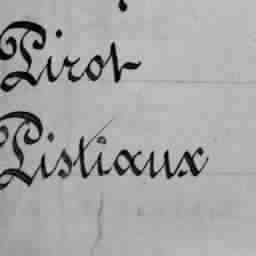 Pirot
Pistiaux